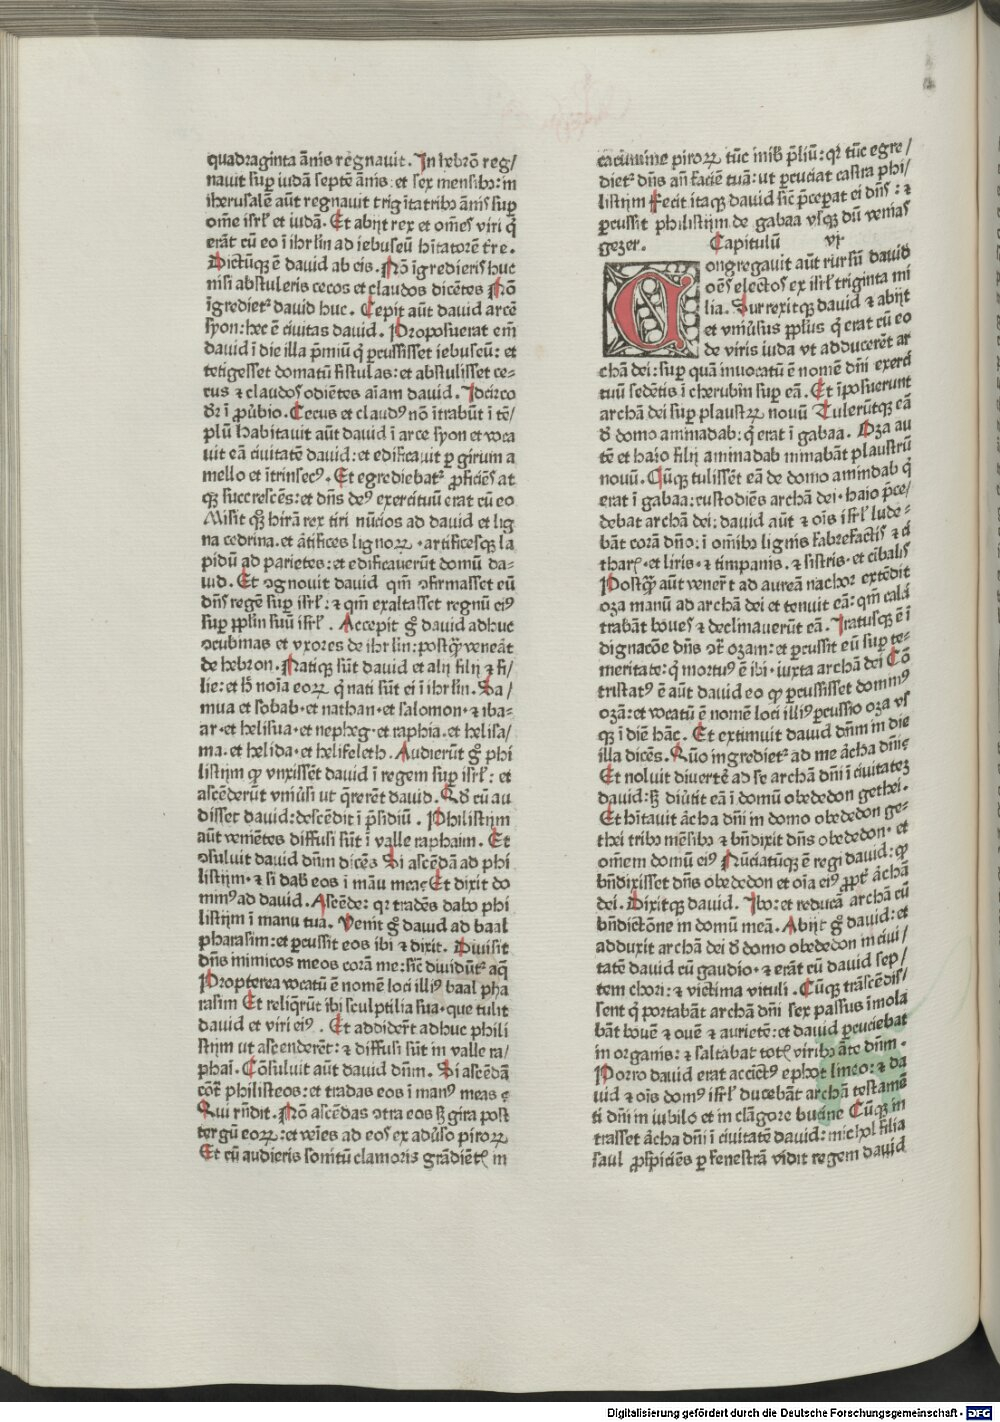 quadraginta ãnis regnauit. In hebrõ reg/
nauit sup̱ iudã septẽ ãnis: et sex mensibꝫ: in
iherusalẽ aũt regnauit trigĩtatribꝫ ãnis sup̱
om̃e isrł et iudã. Et abijt rex et om̃es viri q̃
erãt cũ eo ĩ ihrłm ad iebuseũ hĩtatorẽ t̃re.
Dictũqꝫ ẽ dauid ab eis. Nõ ĩgredieris huc
nisi abstuleris cecos et claudos dicẽtes Nõ
ĩgrediet᷑ dauid huc. Cepit aũt dauid arcẽ
syon: hec ẽ ciuitas dauid. Proposuerat em̃
dauid ĩ die illa p̃miũ q̃ p̱cussisset iebuseũ: et
tetigesset domatũ fistulas: et abstulisset ce-
cus ⁊ claudos odiẽtes aĩam dauid. Idcirco
d̕r ĩ ꝓũbio. Cecus et claudꝰ nõ ĩtrabũt ĩ tẽ/
plũ Habitauit aũt dauid ĩ arce syon et voca
uit eã ciuitatẽ dauid: et edificauit p̱ girum a
mello et ĩtrinsecꝰ. Et egrediebat᷑ ꝓficiẽs at
qꝫ succrescẽs: et dñs deꝰ exercituũ erat cũ eo
Misit qꝫ hirã rex tiri nũcios ad dauid et lig
na cedrina. et ãtifices lignoꝝ · artificesqꝫ la
pidũ ad parietes: et edificauerũt domũ da-
uid. Et ꝯgnouit dauid qm̃ ꝯfirmasset eũ
dñs regẽ sup̱ isrł: ⁊ qm̃ exaltasset regnũ eiꝰ
sup̱ pp̃lm suũ isrł. Accepit gͦ dauid adhuc
ꝯcubinas et vxores de ihrłm: postq̃ veneãt
de hebron. Natiqꝫ sũt dauid et alij filij ⁊ fi-
lie: et h̃ noĩa eoꝝ q̃ nati sũt ei ĩ ihrłm. Sa/
mua et sobab · et nathan · et salomon · ⁊ iba-
ar · et helisua · et nepheg · et raphia. et helisa/
ma. et helida · et helifeleth. Audierũt gͦ phi
listijm ꝙ vnxissẽt dauid ĩ regem sup̱ isrł: et
ascẽderũt vniũsi ut q̃rerẽt dauid. Qd̕ cũ au
disset dauid: descẽdit ĩ p̃sidiũ. Philistijm
aũt veniẽtes diffusi sũt ĩ valle raphaim. Et
ꝯsuluit dauid dñm dicẽs Si ascẽdã ad phi
listijm · ⁊ si dab̕ eos ĩ mãu mea Et dixit do
minꝰ ad dauid. Ascẽde: qꝛ tradẽs dabo phi
listijm ĩ manu tua. Venit gͦ dauid ad baal
pharasim: et p̱cussit eos ibi ⁊ dixit. Diuisit
dñs inimicos meos corã me: sic̃ diuidũt᷑ aq̃
Propterea vocatũ ẽ nomẽ loci illiꝰ baal pha
rasim Et reliq̃rũt ibi sculptilia sua · que tulit
dauid et viri eiꝰ. Et addider̃t adhuc phili
stijm ut ascenderẽt: ⁊ diffusi sũt in valle ra/
phaĩ. Cõsuluit aũt dauid dñm. Si ascẽdã
cõt᷑ philisteos: et tradas eos ĩ manꝰ meas
Qui rñdit. Nõ ascẽdas ꝯtra eos sꝫ gira post
tergũ eoꝝ: et veĩes ad eos ex adũso piroꝝ
Et cũ audieris sonitũ clamoris grãdiẽt᷑ in
cacumine piroꝝ tũc inib̕ p̃liũ: qꝛ tũc egre/
diet᷑ dñs añ faciẽ tuã: ut p̱cuciat castra phi/
listijm Fecit itaqꝫ dauid sic̃ p̃cepat ei dñs: ⁊
p̱cussit philistijm de gabaa vsqꝫ dũ venias
gezer. Capitulũ vj
Congregauit aũt rursũ dauid
oẽs electos ex isrł triginta mi
lia. Surrexitqꝫ dauid ⁊ abijt
et vniũsus pp̃lus q̃ erat cũ eo
de viris iuda vt adducerẽt ar
chã dei: sup̱ quã inuocatũ ẽ nomẽ dñi exerci
tuũ sedẽtis ĩ cherubin sup̱ eã. Et ĩposuerunt
archã dei sup̱ plaustꝝ nouũ Tulerũtqꝫ eã
d̕ domo aminadab: q̃ erat ĩ gabaa. Oza au
tẽ et haio filij aminadab minabãt plaustrũ
nouũ. Cũqꝫ tulissẽt eã de domo amindab q̃
erat ĩ gabaa: custodiẽs archã dei · haio p̃ce/
debat archã dei: dauid aũt ⁊ oĩs isrł lude-
bãt corã dño: ĩ om̃ibꝫ lignis fabrefactis ⁊ ci
thar᷑ · et liris · ⁊ timpanis. ⁊ sistris · et cĩbalis
Postq̃ aũt vener̃t ad aureã nachor extẽdit
oza manũ ad archã dei et tenuit eã: qm̃ calci
trabãt boues ⁊ declinauerũt eã. Iratusqꝫ ẽ ĩ
dignacõe dñs ꝯt᷑ ozam: et p̱cussit eũ sup̱ te-
meritate: q̃ mortuꝰ ẽ ibi · iuxta archã dei Cõ
tristatꝰ ẽ aũt dauid eo ꝙ p̱cussisset dominꝰ
ozã: et vocatũ ẽ nomẽ loci illiꝰ p̱cussio oza vs
qꝫ ĩ diẽ hãc. Et extimuit dauid dñm in die
illa dicẽs. Quõ ingrediet᷑ ad me ãcha dñi
Et noluit diuerter̃ ad se archã dñi ĩ ciuitatez
dauid: sꝫ diũtit eã ĩ domũ obededon gethei.
Et hĩtauit ãcha dñi in domo obededon ge-
thei tribꝫ mẽsibꝫ ⁊ bñdixit dñs obededon · et
om̃em domũ eiꝰ Nũciatũqꝫ ẽ regi dauid: ꝙ
bñdixisset dñs obededon et oĩa eiꝰ ꝓpt᷑ ãchã
dei. Dixitqꝫ dauid. Ibo: et reducã archã cũ
bñdictõne in domũ meã. Abijt gͦ dauid: et
adduxit archã dei d̕ domo obededon in ciui/
tatẽ dauid cũ gaudio · ⁊ erãt cũ dauid sep/
tem chori: ⁊ victima vituli. Cũqꝫ trãscẽdis/
sent q̃ portabãt archã dñi sex passus ĩmola
bãt bouẽ ⁊ ouẽ ⁊ aurietẽ: et dauid p̱cuciebat
in organis: ⁊ saltabat tot᷑ viribꝫ ãte dñm.
Porro dauid erat accictꝰ ephot lineo: ⁊ da
uid ⁊ oĩs domꝰ isrł ducebãt archã testamẽ
ti dñi in iubilo et in clãgore bucine Cũqꝫ in
trasset ãcha dñi ĩ ciuitatẽ dauid: michol filia
saul ꝓspiciẽs p̱ fenestrã vidit regem dauid
Digitalisierung gefördert durch die Deutsche Forschungsgemeinschaft - DFG